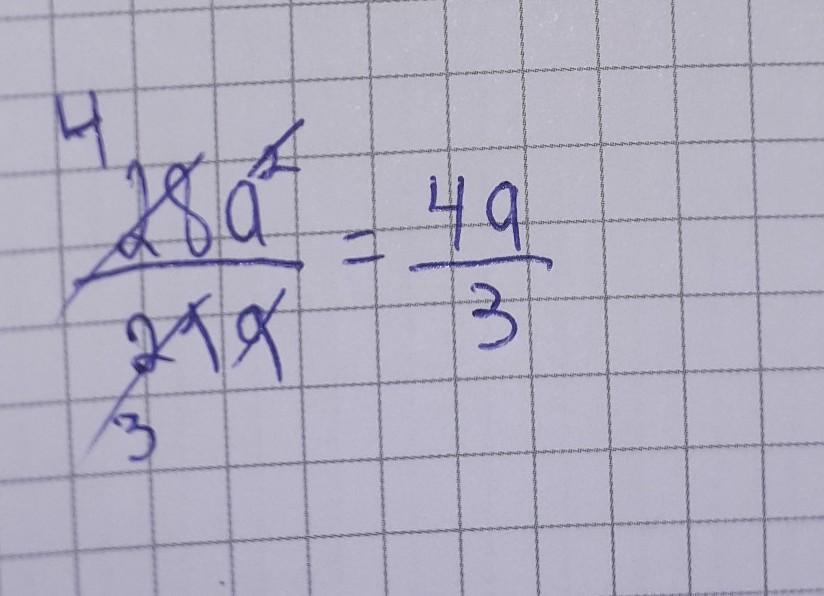 4
28a²
21a
3
= 4a
3